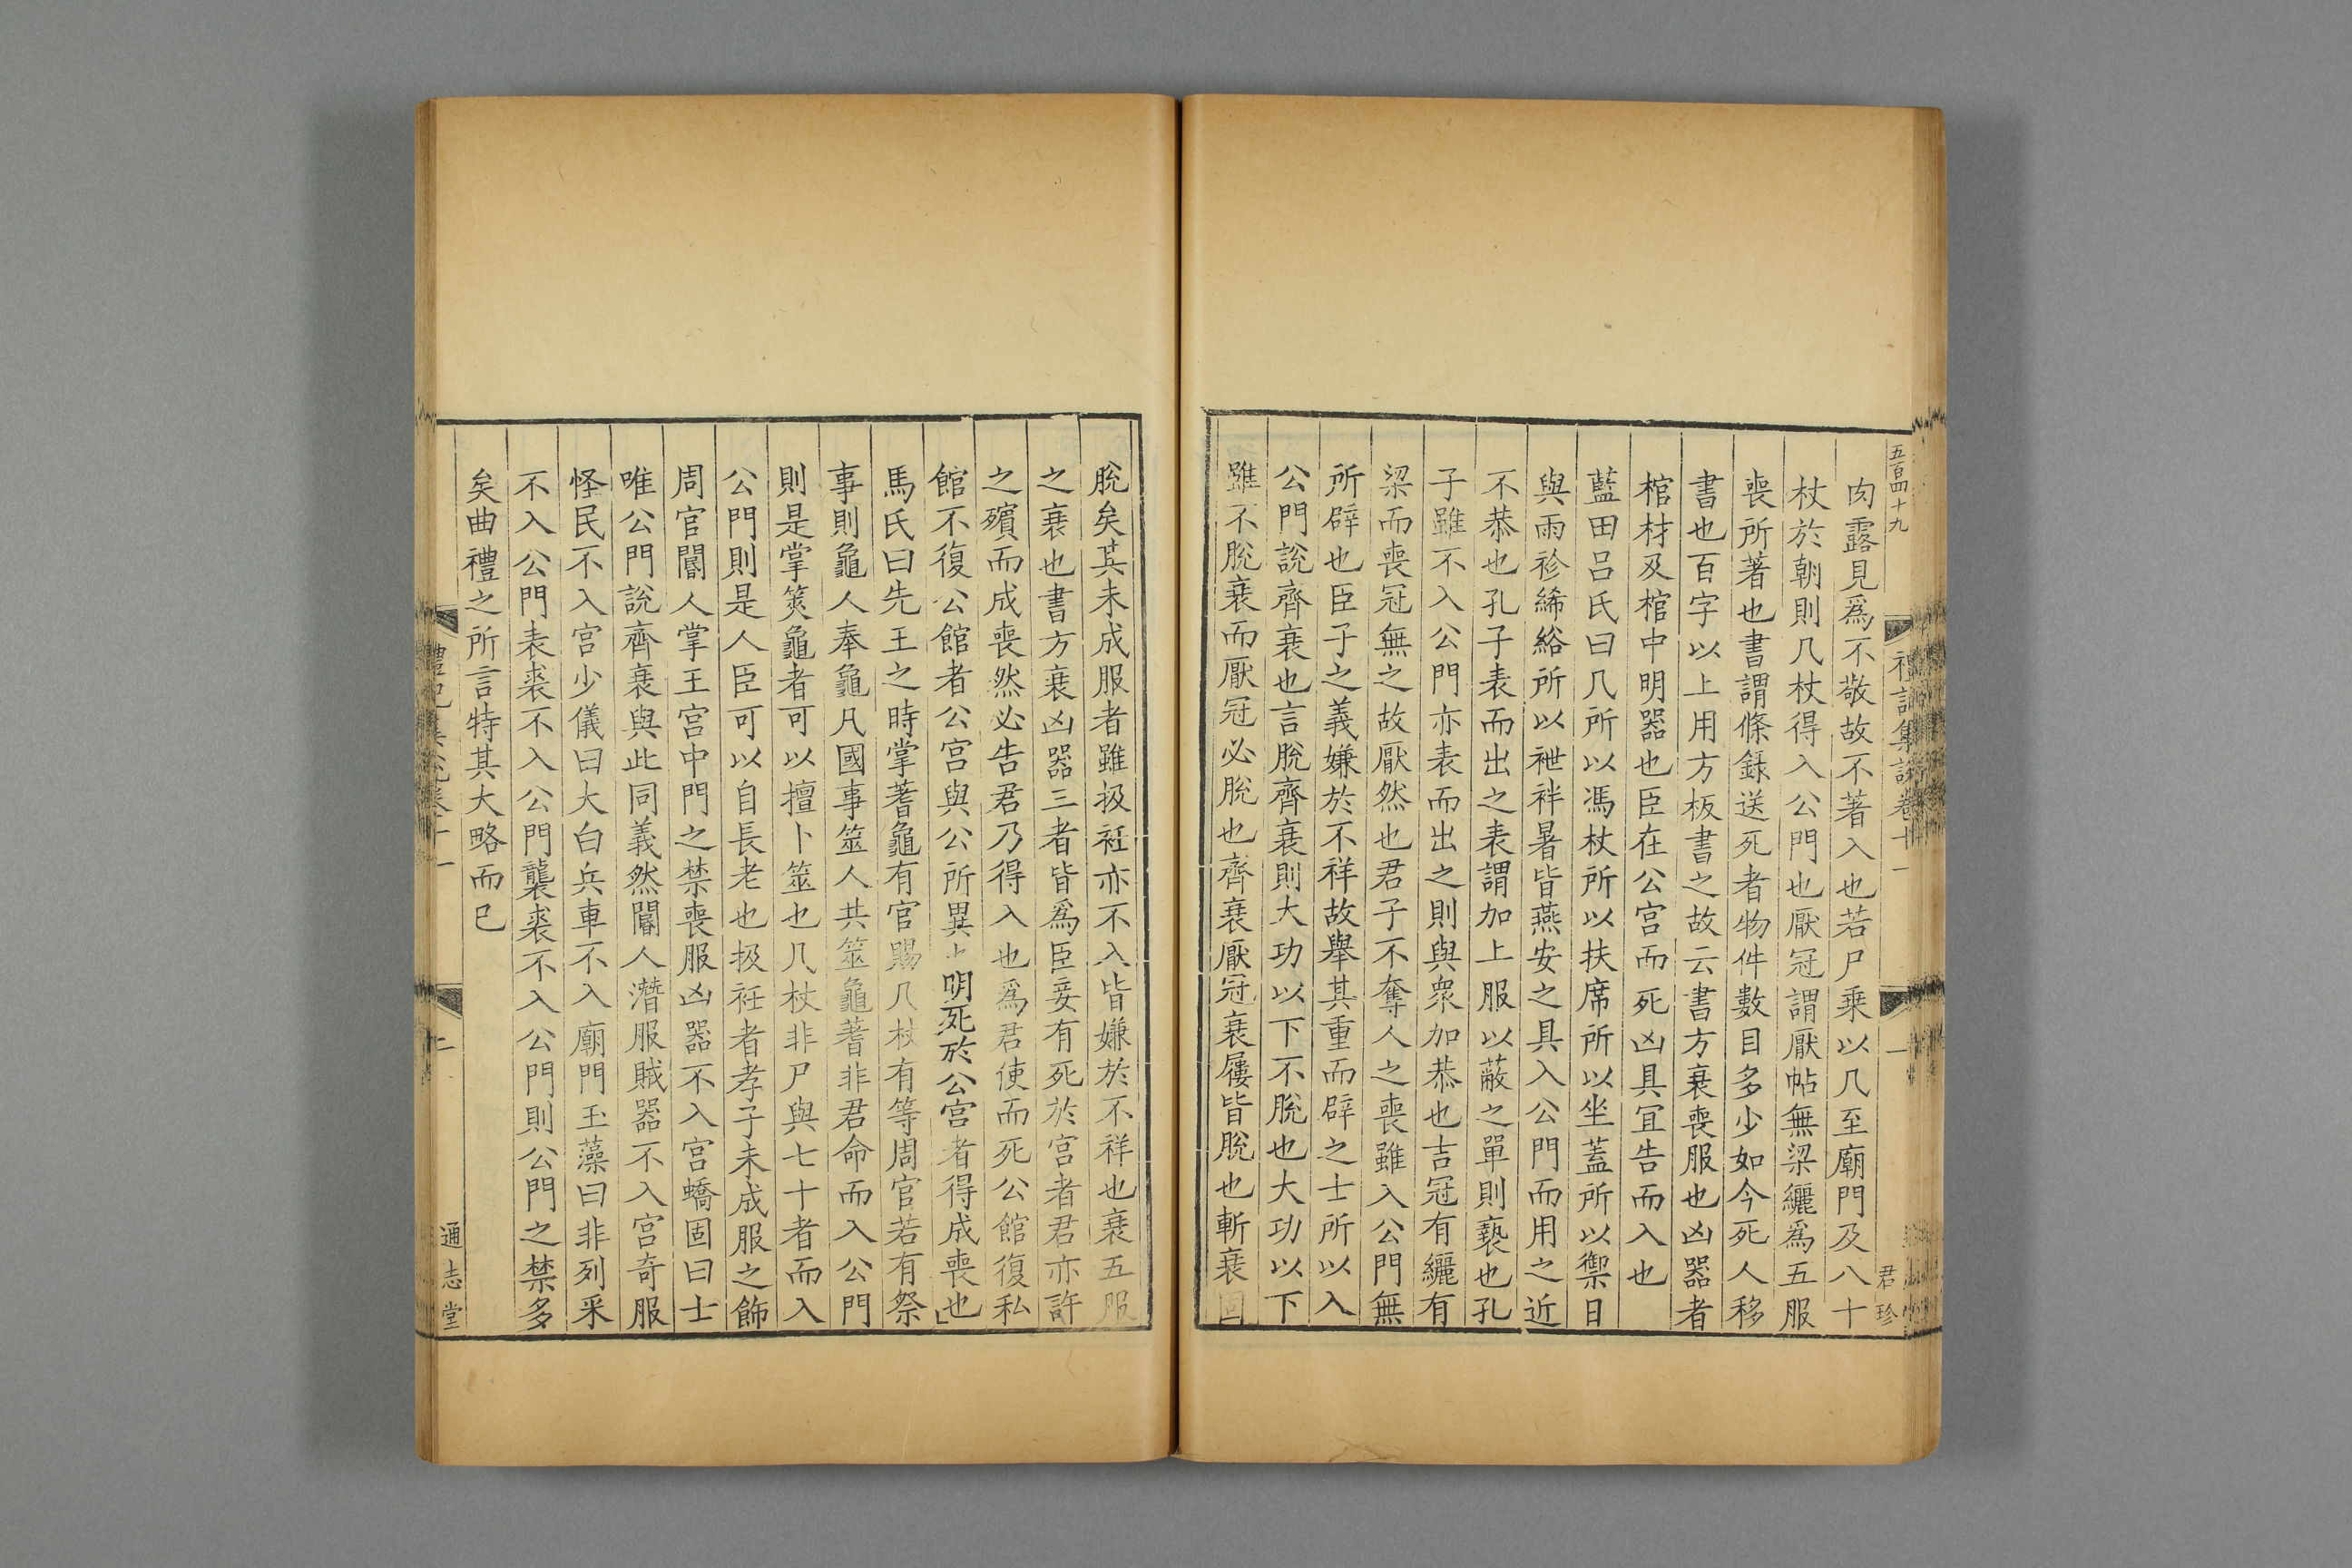 五百四十九
禮記集說卷十一
一
君珍
肉露見爲不敬故不著入也若尸乘以几至廟門及八十
杖於朝則几杖得入公門也厭冠謂厭帖無梁纚爲五服
喪所著也書謂條錄送死者物件數目多少如今死人移
書也百字以上用方板書之故云書方衰喪服也凶器者
棺材及棺中明器也臣在公宮而死凶具宜告而入也
藍田呂氏曰几所以馮杖所以扶席所以坐蓋所以禦日
與雨袗絺綌所以袣袢暑皆燕安之具入公門而用之近
不恭也孔子表而出之表謂加上服以蔽之單則褻也孔
子雖不入公門亦表而出之則與衆加恭也吉冠有纚有
梁而喪冠無之故厭然也君子不奪人之喪雖入公門無
所辟也臣子之義嫌於不祥故舉其重而辟之士所以入
公門說齊衰也言脫齊衰則大功以下不脫也大功以下
雖不脫衰而厭冠必脫也齊衰厭冠衰屨皆脫也斬衰固
脫矣其未成服者雖扱衽亦不入皆嫌於不祥也衰五服
之衰也書方衰凶器三者皆爲臣妾有死於宮者君亦許
之殯而成喪然必告君乃得入也爲君使而死公館復私
館不復公館者公宮與公所異上明死於公宮者得成喪也
馬氏曰先王之時掌蓍龜有官賜几杖有等周官若有祭
事則龜人奉龜凡國事筮人共筮龜蓍非君命而入公門
則是掌筴龜者可以擅卜筮也几杖非尸與七十者而入
公門則是人臣可以自長老也扱衽者孝子未成服之飾
周官閽人掌王宮中門之禁喪服凶器不入宮蟜固曰士
唯公門說齊衰與此同義然閽人潛服賊器不入宮奇服
怪民不入宮少儀曰大白兵車不入廟門玉藻曰非列采
不入公門表裘不入公門襲裘不入公門則公門之禁多
矣曲禮之所言特其大略而已
禮記集說卷十一
二
通志堂